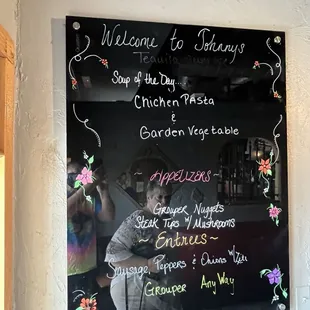 Welcome to Johnnys
Tequila
Soup of the Day....
Chicken Pasta
&
Garden Vegetable
~ Appetizers ~
Grouper Nuggets
Steak Tips w/ Mushrooms
~ Entrees ~
Sausage, Peppers & Onions w/
Grouper Any Way